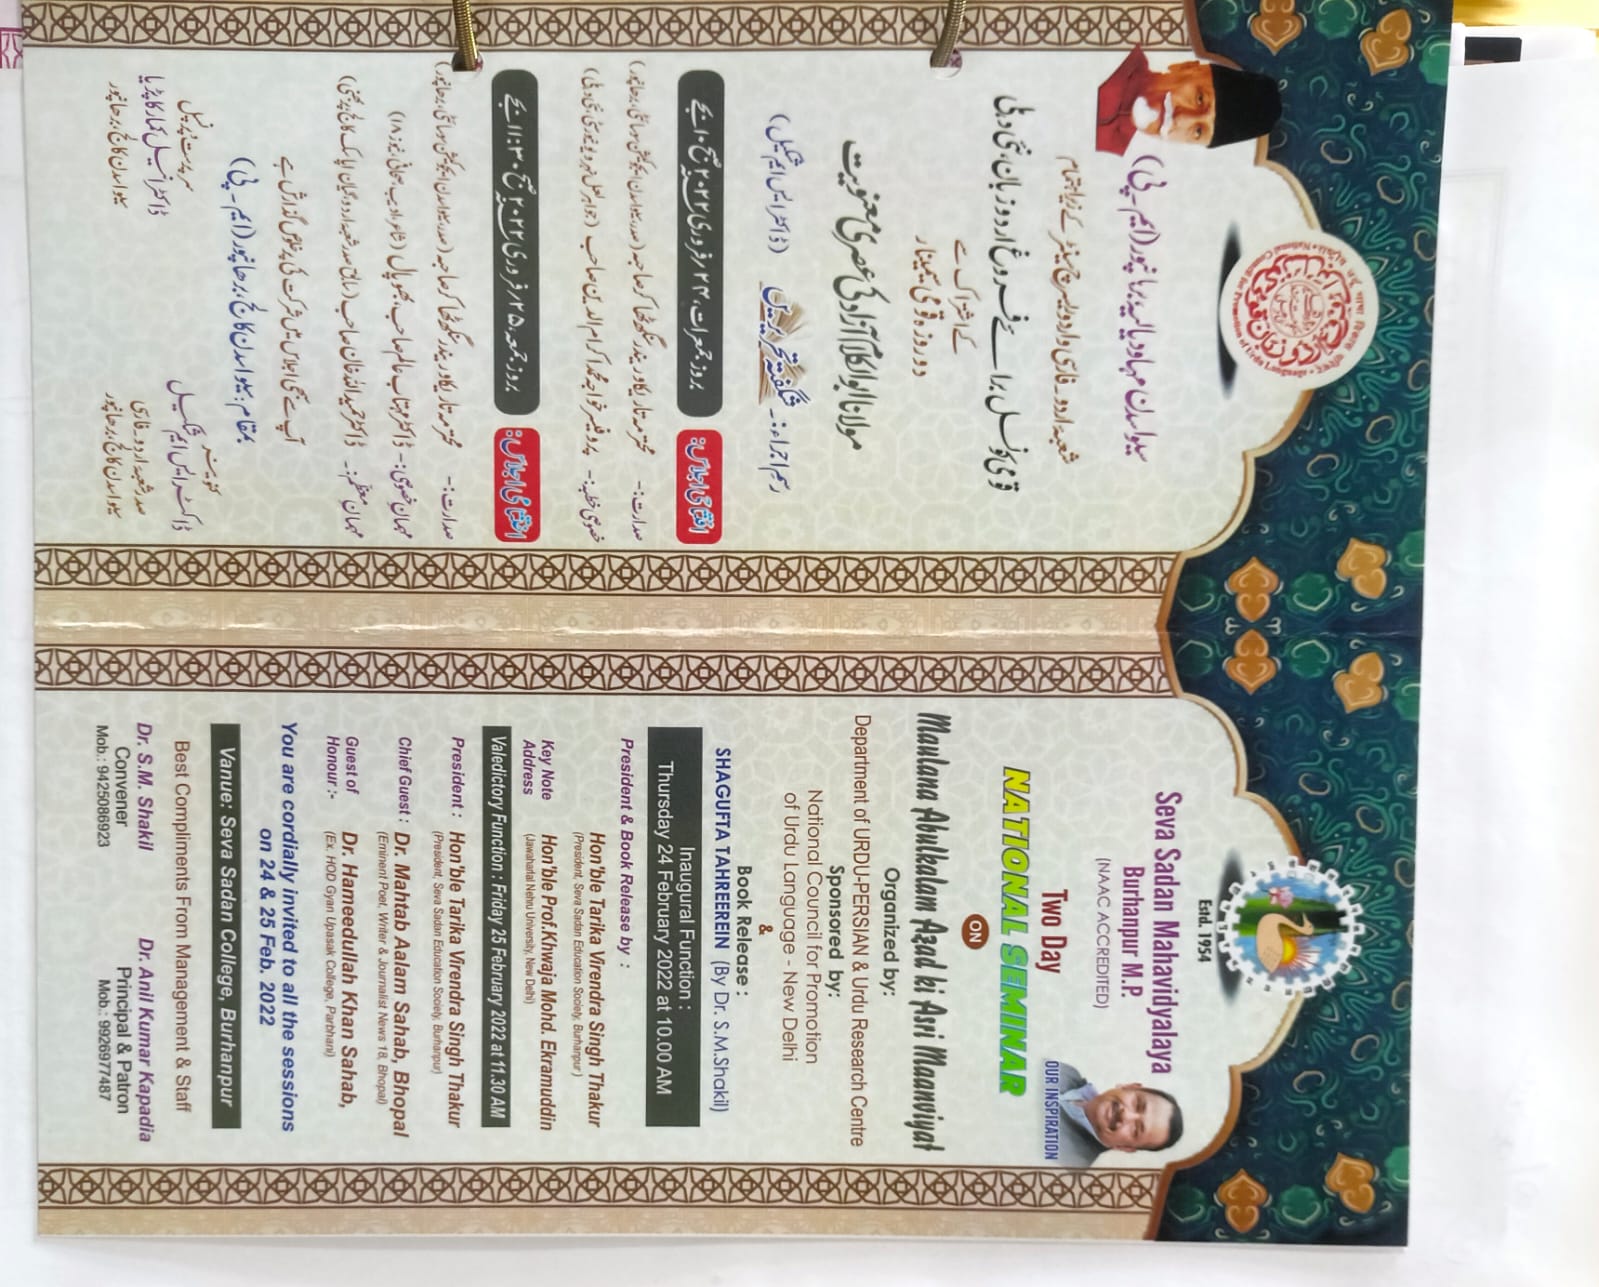 سیواسدن مہاودیالیہ، برہانپور (ایم۔پی)
شعبہ اردو۔فارسی و اردو ریسرچ سینٹر کے زیر اہتمام
قومی کونسل برائے فروغ اردو زبان، نئی دہلی
کے اشتراک سے
دو روزہ قومی سیمینار
مولانا ابوالکلام آزاد کی عصری معنویت
رسم اجراء:۔ شگفتہ تحریریں (ڈاکٹر ایس ایم شکیل)
افتتاحی اجلاس: بروز جمعرات، ۲۴ فروری ۲۰۲۲ صبح ۱۰ بجے
صدارت:۔ محترمہ تاریکا ویریندر سنگھ ٹھاکر صاحبہ (صدر، سیواسدن ایجوکیشن سوسائٹی، برہانپور)
خصوصی خطبہ:۔ پروفیسر خواجہ محمد اکرام الدین صاحب (جواہر لعل نہرو یونیورسٹی، نئی دہلی)
اختتامی اجلاس: بروز جمعہ، ۲۵ فروری ۲۰۲۲ صبح ۱۱:۳۰ بجے
صدارت:۔ محترمہ تاریکا ویریندر سنگھ ٹھاکر صاحبہ (صدر، سیواسدن ایجوکیشن سوسائٹی، برہانپور)
مہمان خصوصی:۔ ڈاکٹر مہتاب عالم صاحب، بھوپال (شاعر، ادیب، صحافی نیوز ۱۸)
مہمان معظم:۔ ڈاکٹر حمید اللہ خان صاحب (سابق صدر شعبہ اردو، گیان اپاسک کالج، پربھنی)
آپ سے سبھی اجلاس میں شرکت کی پرخلوص گذارش ہے
بمقام: سیواسدن کالج، برہانپور (ایم۔پی)
کنوینر
ڈاکٹر ایس ایم شکیل
صدر شعبہ اردو۔فارسی
سیواسدن کالج، برہانپور
سرپرست و پرنسپل
ڈاکٹر انیل کمار کاپڑیا
سیواسدن کالج، برہانپور
National Council for Promotion of Urdu Language
Estd. 1954
Seva Sadan Mahavidyalaya
Burhanpur M.P.
(NAAC ACCREDITED)
OUR INSPIRATION
Two Day
NATIONAL SEMINAR
ON
Maulana Abulkalam Azad ki Asri Maanviyat
Organized by:
Department of URDU-PERSIAN & Urdu Research Centre
Sponsored by:
National Council for Promotion
of Urdu Language - New Delhi
&
Book Release :
SHAGUFTA TAHREEREIN (By Dr. S.M.Shakil)
Inaugural Function :
Thursday 24 February 2022 at 10.00 AM
President & Book Release by :
Hon'ble Tarika Virendra Singh Thakur
(President, Seva Sadan Education Society, Burhanpur )
Key Note Address Hon'ble Prof.Khwaja Mohd. Ekramuddin
(Jawaharlal Nehru University, New Delhi)
Valedictory Function : Friday 25 February 2022 at 11.30 AM
President : Hon'ble Tarika Virendra Singh Thakur
(President, Seva Sadan Education Society, Burhanpur)
Chief Guest : Dr. Mahtab Aalam Sahab, Bhopal
(Eminent Poet, Writer & Journalist News 18, Bhopal)
Guest of Honour :- Dr. Hameedullah Khan Sahab,
(Ex. HOD Gyan Upasak College, Parbhani)
You are cordially invited to all the sessions
on 24 & 25 Feb. 2022
Vanue: Seva Sadan College, Burhanpur
Best Compliments From Management & Staff
Dr. S.M. Shakil
Convener
Mob.: 9425086923
Dr. Anil Kumar Kapadia
Principal & Patron
Mob.: 9926977487